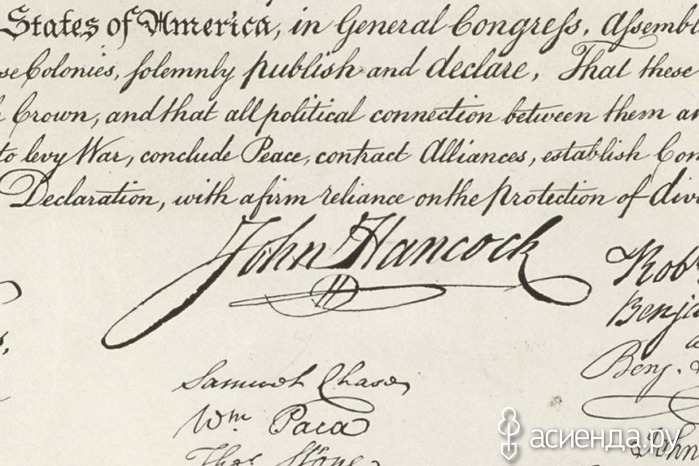 States of America, in General Congress, Assembl
se Colonies, solemnly publish and declare, That these
Crown, and that all political connection between them an
to levy War, conclude Peace, contract Alliances, establish Com
Declaration, with a firm reliance on the protection of divi
John Hancock
Robt
Benja
Benj.
Samuel Chase
Wm. Paca
Thos. Stone
John
асиенда.ру